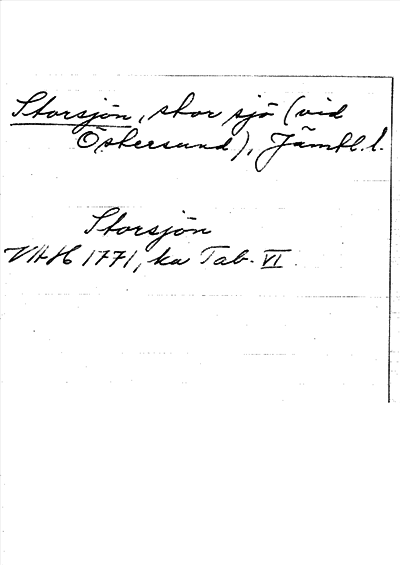 Storsjön, stor sjö (vid
Östersund), Jämtl. l.
Storsjön
VAH 1771, ka Tab. VI.